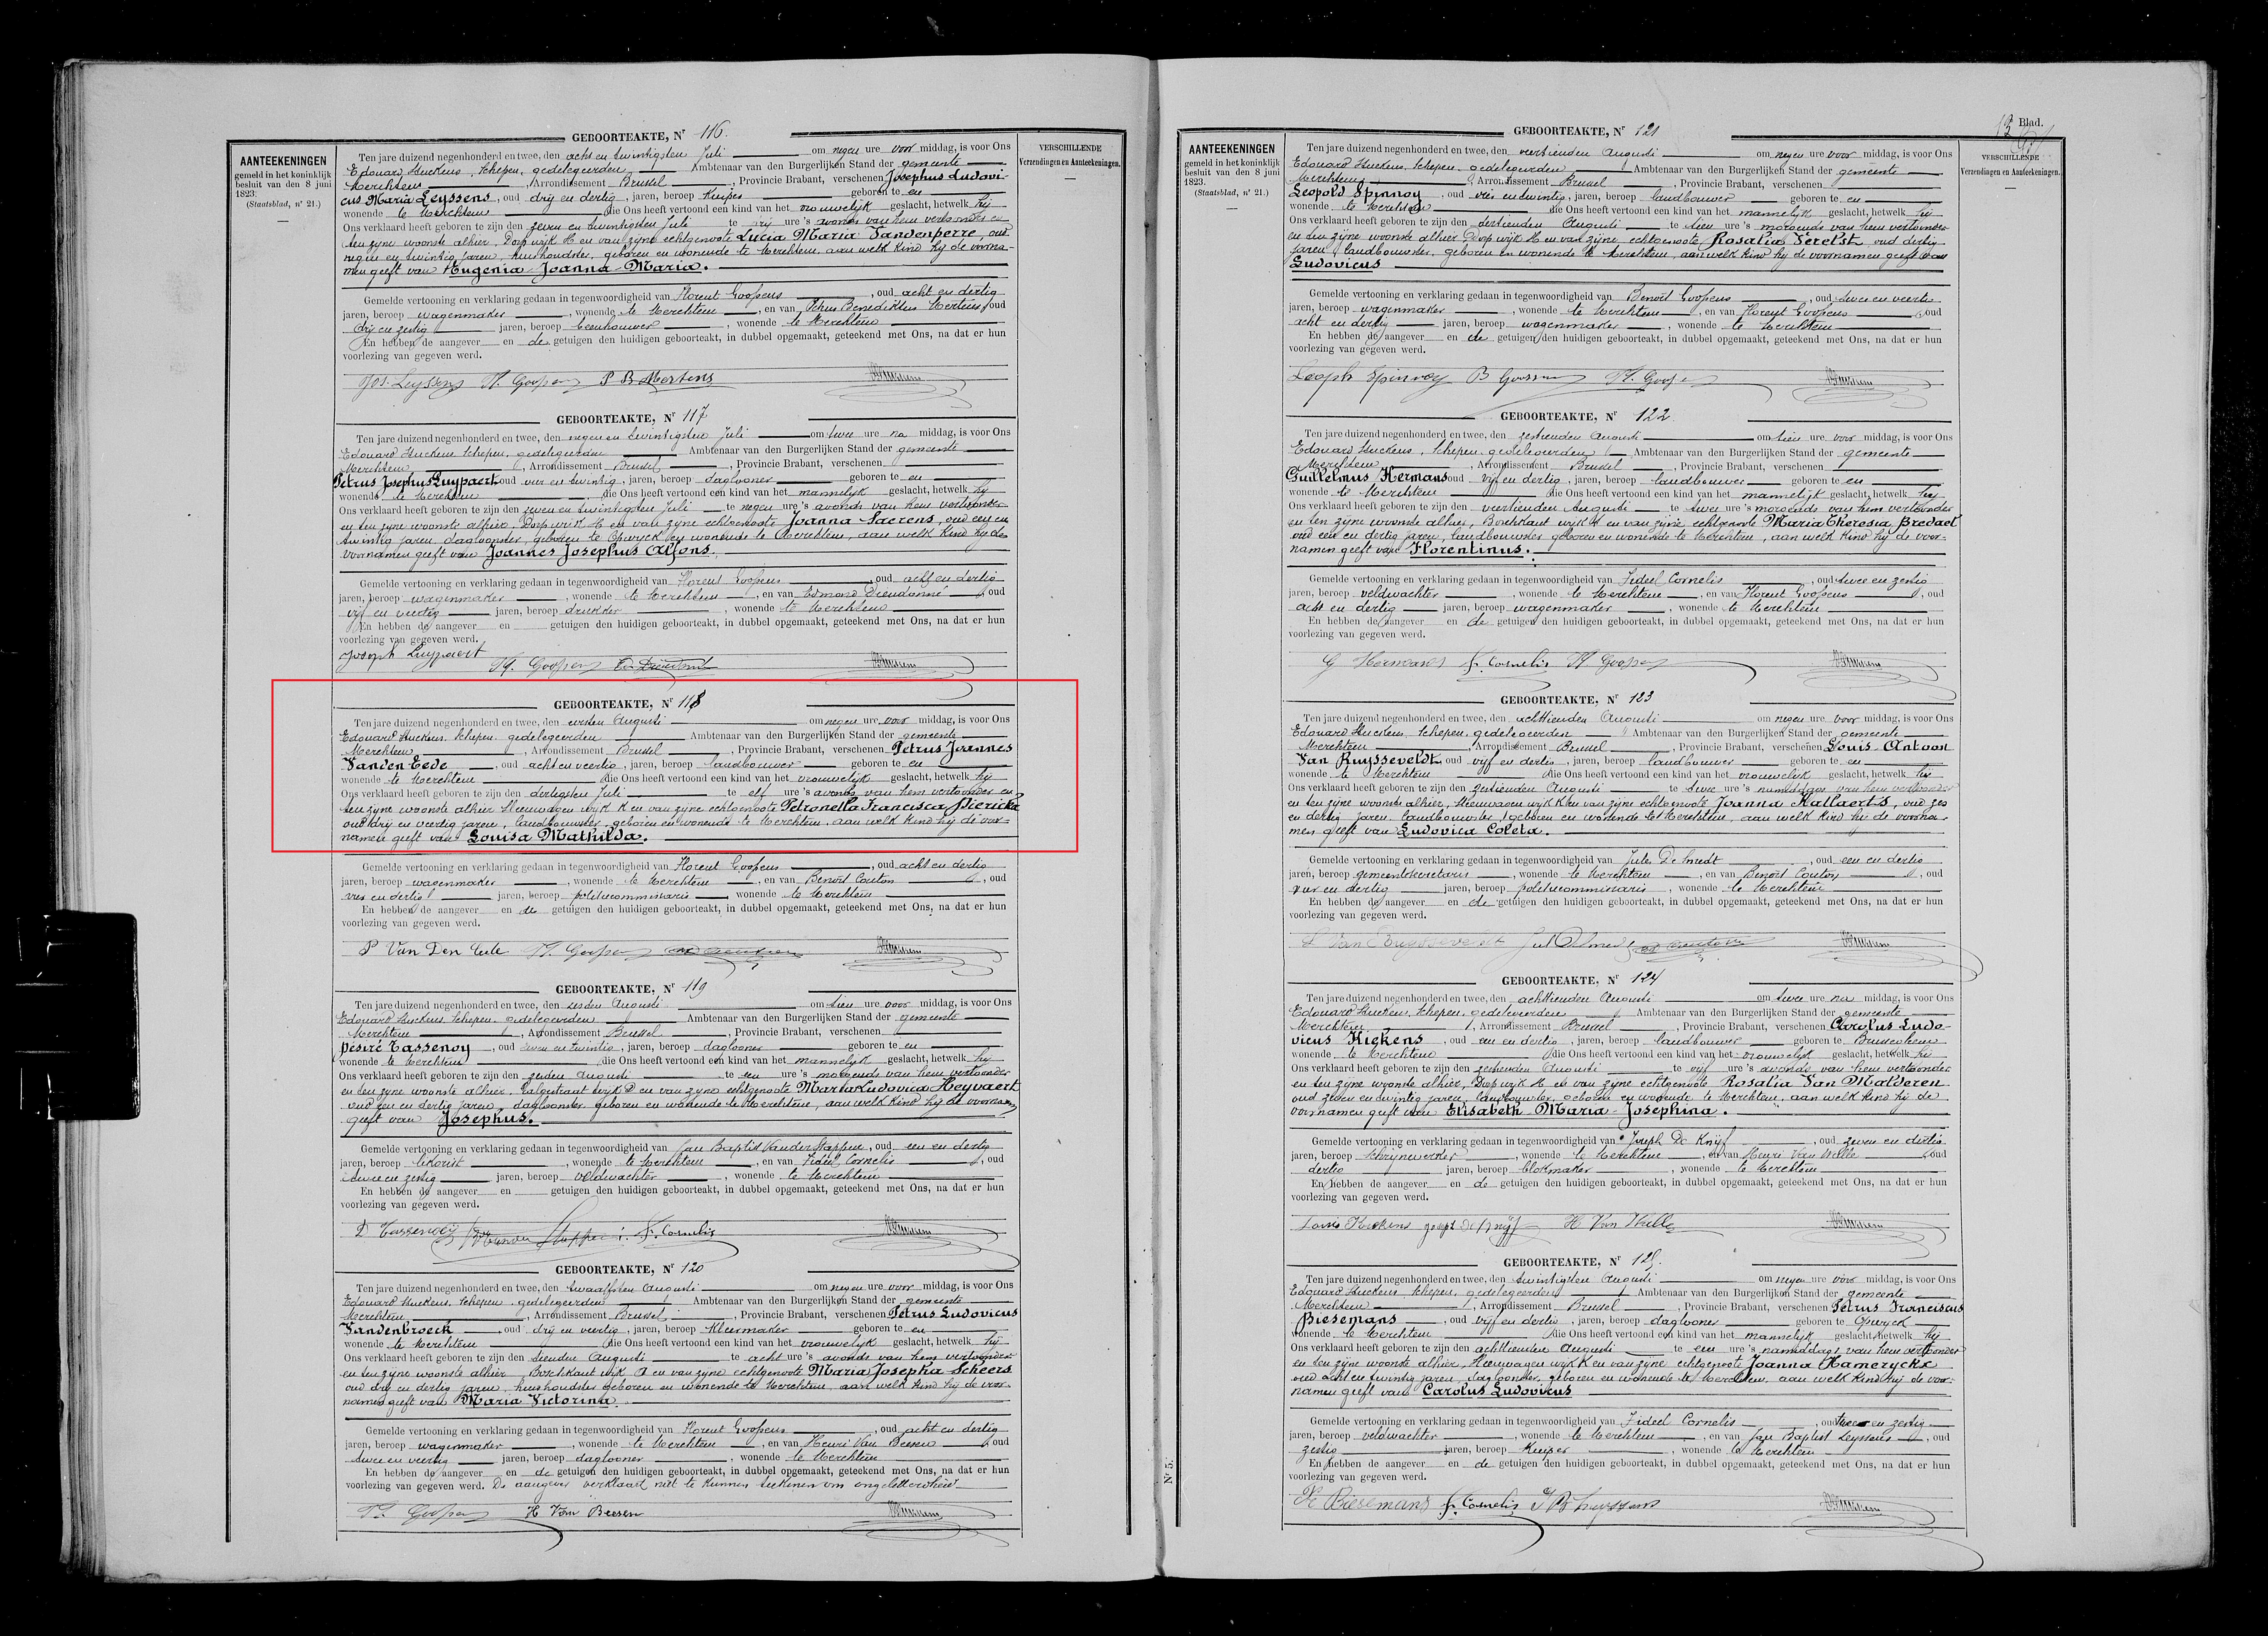 GEBOORTEAKTE, Nr 116.
AANTEEKENINGEN
gemeld in het koninklijk
besluit van den 8 juni
1823:
(Staatsblad, nr 21.)
VERSCHILLENDE
Verzendingen en Aanteekeningen.
Ten jare duizend negenhonderd en twee, den acht en twintigsten Juli om negen ure voor middag, is voor Ons
Edouard Huckens, Schepen, gedelegeerden Ambtenaar van den Burgerlijken Stand der gemeente
Merchtem, Arrondissement Brussel, Provincie Brabant, verschenen Josephus Ludovi-
cus Maria Leyssens, oud drij en dertig, jaren, beroep Kuiper geboren te en
wonende te Merchtem die Ons heeft vertoond een kind van het vrouwelijk geslacht, hetwelk hij
Ons verklaard heeft geboren te zijn den zeven en twintigsten Juli te vrij ure 's avonds van hem vertooner en
ten zijne woonste alhier, Dorp wijk H en van zijne echtgenoote Lucia Maria Vandenperre, oud
negen en twintig jaren, huishoudster, geboren en wonende te Merchtem, aan welk kind hij de voorna-
men geeft van Eugenia Joanna Maria.
Gemelde vertooning en verklaring gedaan in tegenwoordigheid van Florent Goossens, oud acht en dertig
jaren, beroep wagenmaker, wonende te Merchtem, en van Petrus Benediktus Mertens, oud
drij en zestig jaren, beroep beenhouwer, wonende te Merchtem
En hebben de aangever en de getuigen den huidigen geboorteakt, in dubbel opgemaakt, geteekend met Ons, na dat er hun
voorlezing van gegeven werd.
Jos. Leyssens Fl. Goossens P B Mertens
GEBOORTEAKTE, Nr 117
Ten jare duizend negenhonderd en twee, den negen en twintigsten Juli om twee ure na middag, is voor Ons
Edouard Huckens, Schepen, gedelegeerden Ambtenaar van den Burgerlijken Stand der gemeente
Merchtem, Arrondissement Brussel, Provincie Brabant, verschenen
Petrus Josephus Luypaert oud vier en twintig, jaren, beroep daglooner geboren te en
wonende te Merchtem die Ons heeft vertoond een kind van het mannelijk geslacht, hetwelk hij
Ons verklaard heeft geboren te zijn den zeven en twintigsten Juli te negen ure 's avonds van hem vertooner
en ten zijne woonste alhier, Dorp wijk H en van zijne echtgenoote Joanna Saerens, oud een en
twintig jaren, dagloonster, geboren te Opwyck en wonende te Merchtem, aan welk kind hij de
voornamen geeft van Joannes Josephus Alfons.
Gemelde vertooning en verklaring gedaan in tegenwoordigheid van Florent Goossens, oud acht en dertig
jaren, beroep wagenmaker, wonende te Merchtem, en van Edmond Dieudonné, oud
vijf en veertig jaren, beroep drukker, wonende te Merchtem
En hebben de aangever en getuigen den huidigen geboorteakt, in dubbel opgemaakt, geteekend met Ons, na dat er hun
voorlezing van gegeven werd.
Joseph Luypaert
Fl. Goossens
GEBOORTEAKTE, Nr 118
Ten jare duizend negenhonderd en twee, den eersten Augusti om negen ure voor middag, is voor Ons
Edouard Huckens, Schepen, gedelegeerden Ambtenaar van den Burgerlijken Stand der gemeente
Merchtem, Arrondissement Brussel, Provincie Brabant, verschenen Petrus Joannes
Vanden Eede, oud acht en veertig, jaren, beroep landbouwer geboren te en
wonende te Merchtem die Ons heeft vertoond een kind van het vrouwelijk geslacht, hetwelk hij
Ons verklaard heeft geboren te zijn den dertigsten Juli te elf ure 's avonds van hem vertooner en
ten zijne woonste alhier Steenwagen wijk K en van zijne echtgenoote Petronella Francisca Pierickx
oud drij en veertig jaren, landbouwster, geboren en wonende te Merchtem, aan welk kind hij de voor-
namen geeft van Louisa Mathilda.
Gemelde vertooning en verklaring gedaan in tegenwoordigheid van Florent Goossens, oud acht en dertig
jaren, beroep wagenmaker, wonende te Merchtem, en van Benoit Couton, oud
vier en dertig jaren, beroep politiecommissaris, wonende te Merchtem
En hebben de aangever en de getuigen den huidigen geboorteakt, in dubbel opgemaakt, geteekend met Ons, na dat er hun
voorlezing van gegeven werd.
P Van Den Eede Fl. Goossens
GEBOORTEAKTE, Nr 119
Ten jare duizend negenhonderd en twee, den zesden Augusti om tien ure voor middag, is voor Ons
Edouard Huckens, Schepen, gedelegeerden Ambtenaar van den Burgerlijken Stand der gemeente
Merchtem, Arrondissement Brussel, Provincie Brabant, verschenen
Desiré Tassenoy, oud zeven en twintig, jaren, beroep daglooner geboren te en
wonende te Merchtem die Ons heeft vertoond een kind van het mannelijk geslacht, hetwelk hij
Ons verklaard heeft geboren te zijn den zesden Augusti te een ure 's morgends van hem vertooner
en ten zijne woonste alhier, Galgestraat wijk D en van zijne echtgenoote Maria Ludovica Heyvaert
oud een en dertig jaren, dagloonster, geboren en wonende te Merchtem, aan welk kind hij de voornamen
geeft van Josephus.
Gemelde vertooning en verklaring gedaan in tegenwoordigheid van Jan Baptist Vanderstappen, oud een en dertig
jaren, beroep, wonende te Merchtem, en van Fideel Cornelis, oud
twee en zestig jaren, beroep veldwachter, wonende te Merchtem
En hebben de aangever en getuigen den huidigen geboorteakt, in dubbel opgemaakt, geteekend met Ons, na dat er hun
voorlezing van gegeven werd.
D Tassenoy F. Cornelis
GEBOORTEAKTE, Nr 120
Ten jare duizend negenhonderd en twee, den twaalfsten Augusti om negen ure voor middag, is voor Ons
Edouard Huckens, Schepen, gedelegeerden Ambtenaar van den Burgerlijken Stand der gemeente
Merchtem, Arrondissement Brussel, Provincie Brabant, verschenen Petrus Ludovicus
Vandenbroeck, oud drij en veertig, jaren, beroep kleermaker geboren te en
wonende te Merchtem die Ons heeft vertoond een kind van het vrouwelijk geslacht, hetwelk hij
Ons verklaard heeft geboren te zijn den tienden Augusti te acht ure 's avonds van hem vertooner
en ten zijne woonste alhier, Boschkant wijk A en van zijne echtgenoote Maria Josepha Scheers
oud drij en dertig jaren, huishoudster geboren en wonende te Merchtem, aan welk kind hij de voor-
namen geeft van Maria Victorina.
Gemelde vertooning en verklaring gedaan in tegenwoordigheid van Florent Goossens, oud acht en dertig
jaren, beroep wagenmaker, wonende te Merchtem, en van Henri Van Beesen, oud
twee en veertig jaren, beroep daglooner, wonende te Merchtem
En hebben de aangever en de getuigen den huidigen geboorteakt, in dubbel opgemaakt, geteekend met Ons, na dat er hun
voorlezing van gegeven werd. De aangever verklaart niet te kunnen teekenen om ongeletterdheid
Fl. Goossens H Van Beesen
13 Blad.
GEBOORTEAKTE, Nr 121
AANTEEKENINGEN
gemeld in het koninklijk
besluit van den 8 juni
1823.
(Staatsblad, nr 21.)
VERSCHILLENDE
Verzendingen en Aanteekeningen.
Ten jare duizend negenhonderd en twee, den veertienden Augusti om negen ure voor middag, is voor Ons
Edouard Huckens, Schepen, gedelegeerden Ambtenaar van den Burgerlijken Stand der gemeente
Merchtem, Arrondissement Brussel, Provincie Brabant, verschenen
Leopold Spinnoy, oud vier en twintig, jaren, beroep landbouwer geboren te en
wonende te Merchtem die Ons heeft vertoond een kind van het mannelijk geslacht, hetwelk hij
Ons verklaard heeft geboren te zijn den dertienden Augusti te tien ure 's morgends van hem vertooner
en ten zijne woonste alhier Dorp wijk H en van zijne echtgenoote Rosalia Verelst, oud dertig
jaren, landbouwster, geboren en wonende te Merchtem, aan welk kind hij de voornamen geeft van
Ludovicus
Gemelde vertooning en verklaring gedaan in tegenwoordigheid van Benoit Goossens, oud twee en veertig
jaren, beroep wagenmaker, wonende te Merchtem, en van Florent Goossens, oud
acht en dertig jaren, beroep wagenmaker, wonende te Merchtem
En hebben de aangever en de getuigen den huidigen geboorteakt, in dubbel opgemaakt, geteekend met Ons, na dat er hun
voorlezing van gegeven werd.
Leoph Spinnoy B Goossens Fl. Goossens
GEBOORTEAKTE, Nr 122
Ten jare duizend negenhonderd en twee, den zestienden Augusti om tien ure voor middag, is voor Ons
Edouard Huckens, Schepen, gedelegeerden Ambtenaar van den Burgerlijken Stand der gemeente
Merchtem, Arrondissement Brussel, Provincie Brabant, verschenen
Guillelmus Hermans oud vijf en dertig, jaren, beroep landbouwer geboren te en
wonende te Merchtem die Ons heeft vertoond een kind van het mannelijk geslacht, hetwelk hij
Ons verklaard heeft geboren te zijn den veertienden Augusti te twee ure 's morgends van hem vertooner
en ten zijne woonste alhier, Boschkant wijk A en van zijne echtgenoote Maria Theresia Bredael
oud een en dertig jaren, landbouwster geboren en wonende te Merchtem, aan welk kind hij de voor-
namen geeft van Florentinus.
Gemelde vertooning en verklaring gedaan in tegenwoordigheid van Fideel Cornelis, oud twee en zestig
jaren, beroep veldwachter, wonende te Merchtem, en van Florent Goossens, oud
acht en dertig jaren, beroep wagenmaker, wonende te Merchtem
En hebben de aangever en de getuigen den huidigen geboorteakt, in dubbel opgemaakt, geteekend met Ons, na dat er hun
voorlezing van gegeven werd.
G Hermans F. Cornelis Fl. Goossens
GEBOORTEAKTE, Nr 123
Ten jare duizend negenhonderd en twee, den achttienden Augusti om negen ure voor middag, is voor Ons
Edouard Huckens, Schepen, gedelegeerden Ambtenaar van den Burgerlijken Stand der gemeente
Merchtem, Arrondissement Brussel, Provincie Brabant, verschenen Louis Antoon
Van Ruysseveldt, oud vijf en dertig, jaren, beroep landbouwer geboren te en
wonende te Merchtem die Ons heeft vertoond een kind van het vrouwelijk geslacht, hetwelk hij
Ons verklaard heeft geboren te zijn den zestienden Augusti te twee ure 's namiddags van hem vertooner
en ten zijne woonste alhier, Steenwagen wijk K en van zijne echtgenoote Joanna Kallaerts, oud zes
en dertig jaren, landbouwster, geboren en wonende te Merchtem, aan welk kind hij de voorna-
men geeft van Ludovica Coleta.
Gemelde vertooning en verklaring gedaan in tegenwoordigheid van Jules De Smedt, oud een en dertig
jaren, beroep gemeentesecretaris, wonende te Merchtem, en van Benoit Couton, oud
vier en dertig jaren, beroep politiecommissaris, wonende te Merchtem
En hebben de aangever en de getuigen den huidigen geboorteakt, in dubbel opgemaakt, geteekend met Ons, na dat er hun
voorlezing van gegeven werd.
L Van Ruysseveldt
GEBOORTEAKTE, Nr 124
Ten jare duizend negenhonderd en twee, den achttienden Augusti om twee ure na middag, is voor Ons
Edouard Huckens, Schepen, gedelegeerden Ambtenaar van den Burgerlijken Stand der gemeente
Merchtem, Arrondissement Brussel, Provincie Brabant, verschenen Carolus Ludo-
vicus Kiekens, oud een en dertig, jaren, beroep landbouwer geboren te Brusseghem
wonende te Merchtem die Ons heeft vertoond een kind van het vrouwelijk geslacht, hetwelk hij
Ons verklaard heeft geboren te zijn den zestienden Augusti te vijf ure 's avonds van hem vertooner
en ten zijne woonste alhier, Dorp wijk H en van zijne echtgenoote Rosalia Van Malderen
oud zeven en twintig jaren, landbouwster, geboren en wonende te Merchtem, aan welk kind hij de
voornamen geeft van Elisabeth Maria Josephina.
Gemelde vertooning en verklaring gedaan in tegenwoordigheid van Joseph De Knijf, oud zeven en dertig
jaren, beroep schrijnwerker, wonende te Merchtem, en van Henri Van Nille, oud
dertig jaren, beroep blokmaker, wonende te Merchtem
En hebben de aangever en de getuigen den huidigen geboorteakt, in dubbel opgemaakt, geteekend met Ons, na dat er hun
voorlezing van gegeven werd.
Louis Kiekens Joseph De Knijf H Van Nille
GEBOORTEAKTE, Nr 125.
Ten jare duizend negenhonderd en twee, den twintigsten Augusti om negen ure voor middag, is voor Ons
Edouard Huckens, Schepen, gedelegeerden Ambtenaar van den Burgerlijken Stand der gemeente
Merchtem, Arrondissement Brussel, Provincie Brabant, verschenen Petrus Franciscus
Biesemans, oud vijf en dertig, jaren, beroep daglooner geboren te Opwyck
wonende te Merchtem die Ons heeft vertoond een kind van het mannelijk geslacht, hetwelk hij
Ons verklaard heeft geboren te zijn den achttienden Augusti te een ure 's namiddags van hem vertooner
en ten zijne woonste alhier, Steenwagen wijk K en van zijne echtgenoote Joanna Hamerycks
oud acht en twintig jaren, dagloonster, geboren en wonende te Merchtem, aan welk kind hij de voor-
namen geeft van Carolus Ludovicus
Gemelde vertooning en verklaring gedaan in tegenwoordigheid van Fideel Cornelis, oud twee en zestig
jaren, beroep veldwachter, wonende te Merchtem, en van Jan Baptist Leyssens, oud
zestig jaren, beroep Kuiper, wonende te Merchtem
En hebben de aangever en de getuigen den huidigen geboorteakt, in dubbel opgemaakt, geteekend met Ons, na dat er hun
voorlezing van gegeven werd.
Biesemans F. Cornelis J B Leyssens
Nr 5.